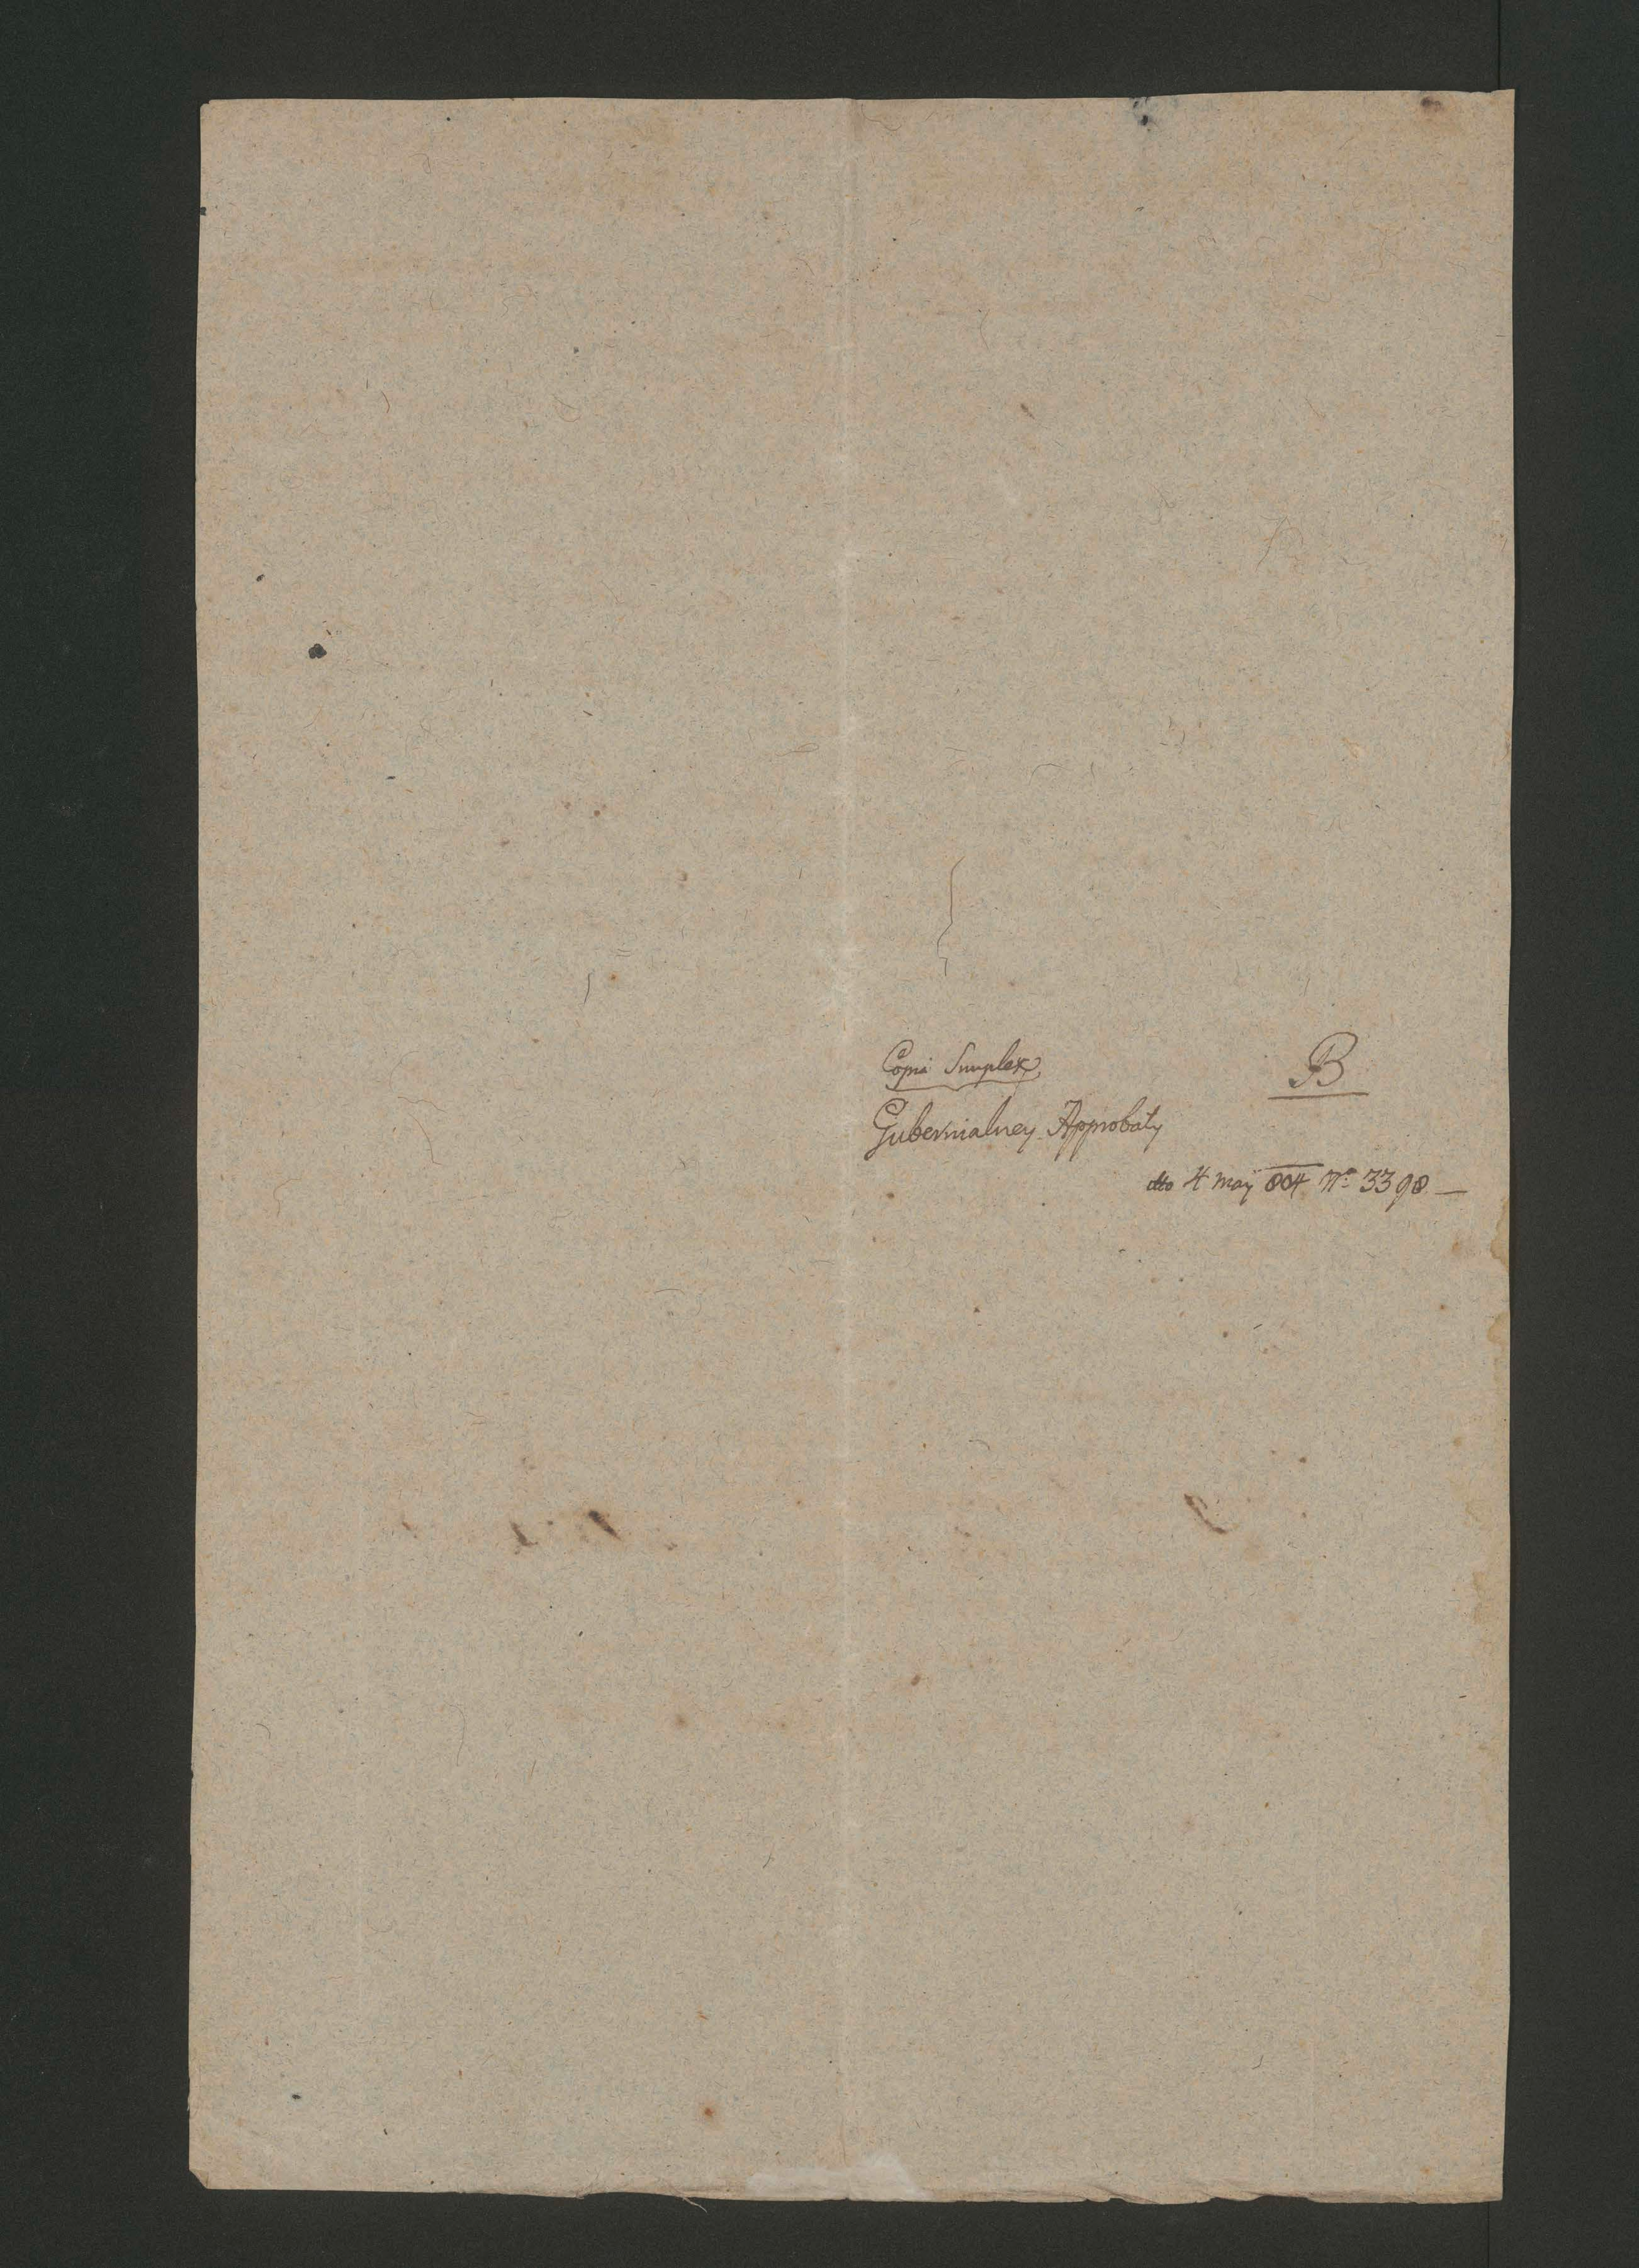 Copia Simplex
B
Gubernialney Approbaty
dto 4 May 804 Nº 3398. —